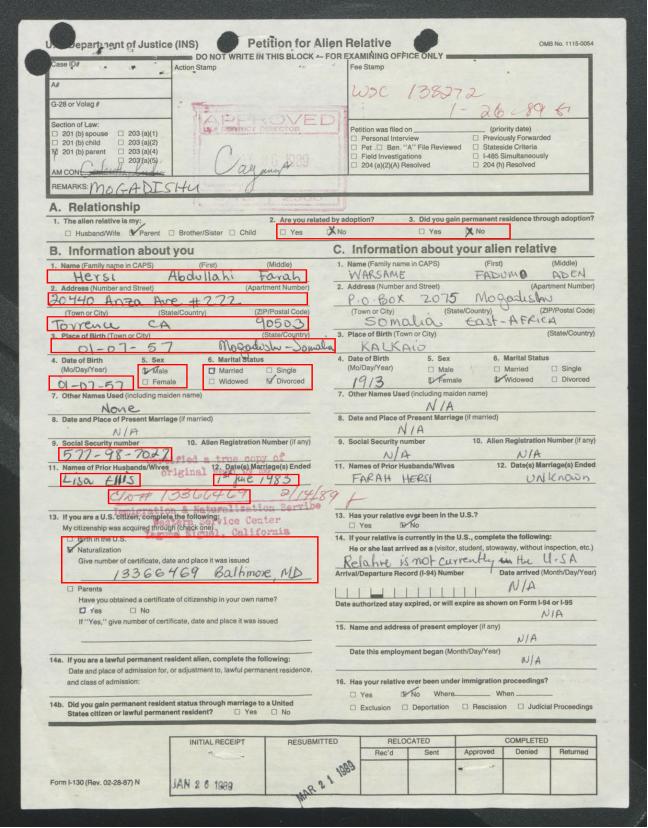 U.S. Department of Justice (INS) Petition for Alien Relative OMB No. 1115-0054
DO NOT WRITE IN THIS BLOCK — FOR EXAMINING OFFICE ONLY
Case ID# Action Stamp Fee Stamp
A#
WSC 138272
G-28 or Volag #
1-26-89
Section of Law:
☐ 201 (b) spouse ☐ 203 (a)(1)
☐ 201 (b) child ☐ 203 (a)(2)
☑ 201 (b) parent ☐ 203 (a)(4)
☐ 203 (a)(5)
AM CON:
REMARKS: MOGADISHU
APPROVED
DISTRICT DIRECTOR
1989
Petition was filed on (priority date)
☐ Personal Interview ☐ Previously Forwarded
☐ Pet. ☐ Ben. "A" File Reviewed ☐ Stateside Criteria
☐ Field Investigations ☐ I-485 Simultaneously
☐ 204 (a)(2)(A) Resolved ☐ 204 (h) Resolved
A. Relationship
1. The alien relative is my: 2. Are you related by adoption? 3. Did you gain permanent residence through adoption?
☐ Husband/Wife ☑ Parent ☐ Brother/Sister ☐ Child ☐ Yes ☒ No ☐ Yes ☒ No
B. Information about you
1. Name (Family name in CAPS) (First) (Middle)
Hersi Abdullahi Farah
2. Address (Number and Street) (Apartment Number)
20440 Anza Ave #272
(Town or City) (State/Country) (ZIP/Postal Code)
Torrence CA 90503
3. Place of Birth (Town or City) (State/Country)
01-07-57 Mogadishu-Somalia
4. Date of Birth 5. Sex 6. Marital Status
(Mo/Day/Year) ☑ Male ☐ Married ☐ Single
01-07-57 ☐ Female ☐ Widowed ☑ Divorced
7. Other Names Used (including maiden name)
None
8. Date and Place of Present Marriage (if married)
N/A
9. Social Security number 10. Alien Registration Number (if any)
577-98-7027
11. Names of Prior Husbands/Wives 12. Date(s) Marriage(s) Ended
Lisa Ellis 1983
C/N# 13366469 2/14/89
Certified a true copy of
original
Immigration & Naturalization Service
Western Service Center
Laguna Niguel, California
13. If you are a U.S. citizen, complete the following:
My citizenship was acquired through (check one)
☐ Birth in the U.S.
☑ Naturalization
Give number of certificate, date and place it was issued
13366469 Baltimore, MD
☐ Parents
Have you obtained a certificate of citizenship in your own name?
☐ Yes ☐ No
If "Yes," give number of certificate, date and place it was issued
14a. If you are a lawful permanent resident alien, complete the following:
Date and place of admission for, or adjustment to, lawful permanent residence,
and class of admission:
14b. Did you gain permanent resident status through marriage to a United
States citizen or lawful permanent resident? ☐ Yes ☐ No
C. Information about your alien relative
1. Name (Family name in CAPS) (First) (Middle)
WARSAME FADUMO ADEN
2. Address (Number and Street) (Apartment Number)
P.O.BOX 2075 Mogadishu
(Town or City) (State/Country) (ZIP/Postal Code)
SOMALIA EAST-AFRICA
3. Place of Birth (Town or City) (State/Country)
KALKAIO
4. Date of Birth 5. Sex 6. Marital Status
(Mo/Day/Year) ☐ Male ☐ Married ☐ Single
1913 ☑ Female ☑ Widowed ☐ Divorced
7. Other Names Used (including maiden name)
N/A
8. Date and Place of Present Marriage (if married)
N/A
9. Social Security number 10. Alien Registration Number (if any)
N/A N/A
11. Names of Prior Husbands/Wives 12. Date(s) Marriage(s) Ended
FARAH HERSI UNKNOWN
13. Has your relative ever been in the U.S.?
☐ Yes ☑ No
14. If your relative is currently in the U.S., complete the following:
He or she last arrived as a (visitor, student, stowaway, without inspection, etc.)
Relative is not currently in the U.SA
Arrival/Departure Record (I-94) Number Date arrived (Month/Day/Year)
N/A
Date authorized stay expired, or will expire as shown on Form I-94 or I-95
N/A
15. Name and address of present employer (if any)
N/A
Date this employment began (Month/Day/Year)
N/A
16. Has your relative ever been under immigration proceedings?
☐ Yes ☑ No Where When
☐ Exclusion ☐ Deportation ☐ Rescission ☐ Judicial Proceedings
INITIAL RECEIPT RESUBMITTED RELOCATED COMPLETED
Rec'd Sent Approved Denied Returned
JAN 26 1989 MAR 21 1989
Form I-130 (Rev. 02-28-87) N